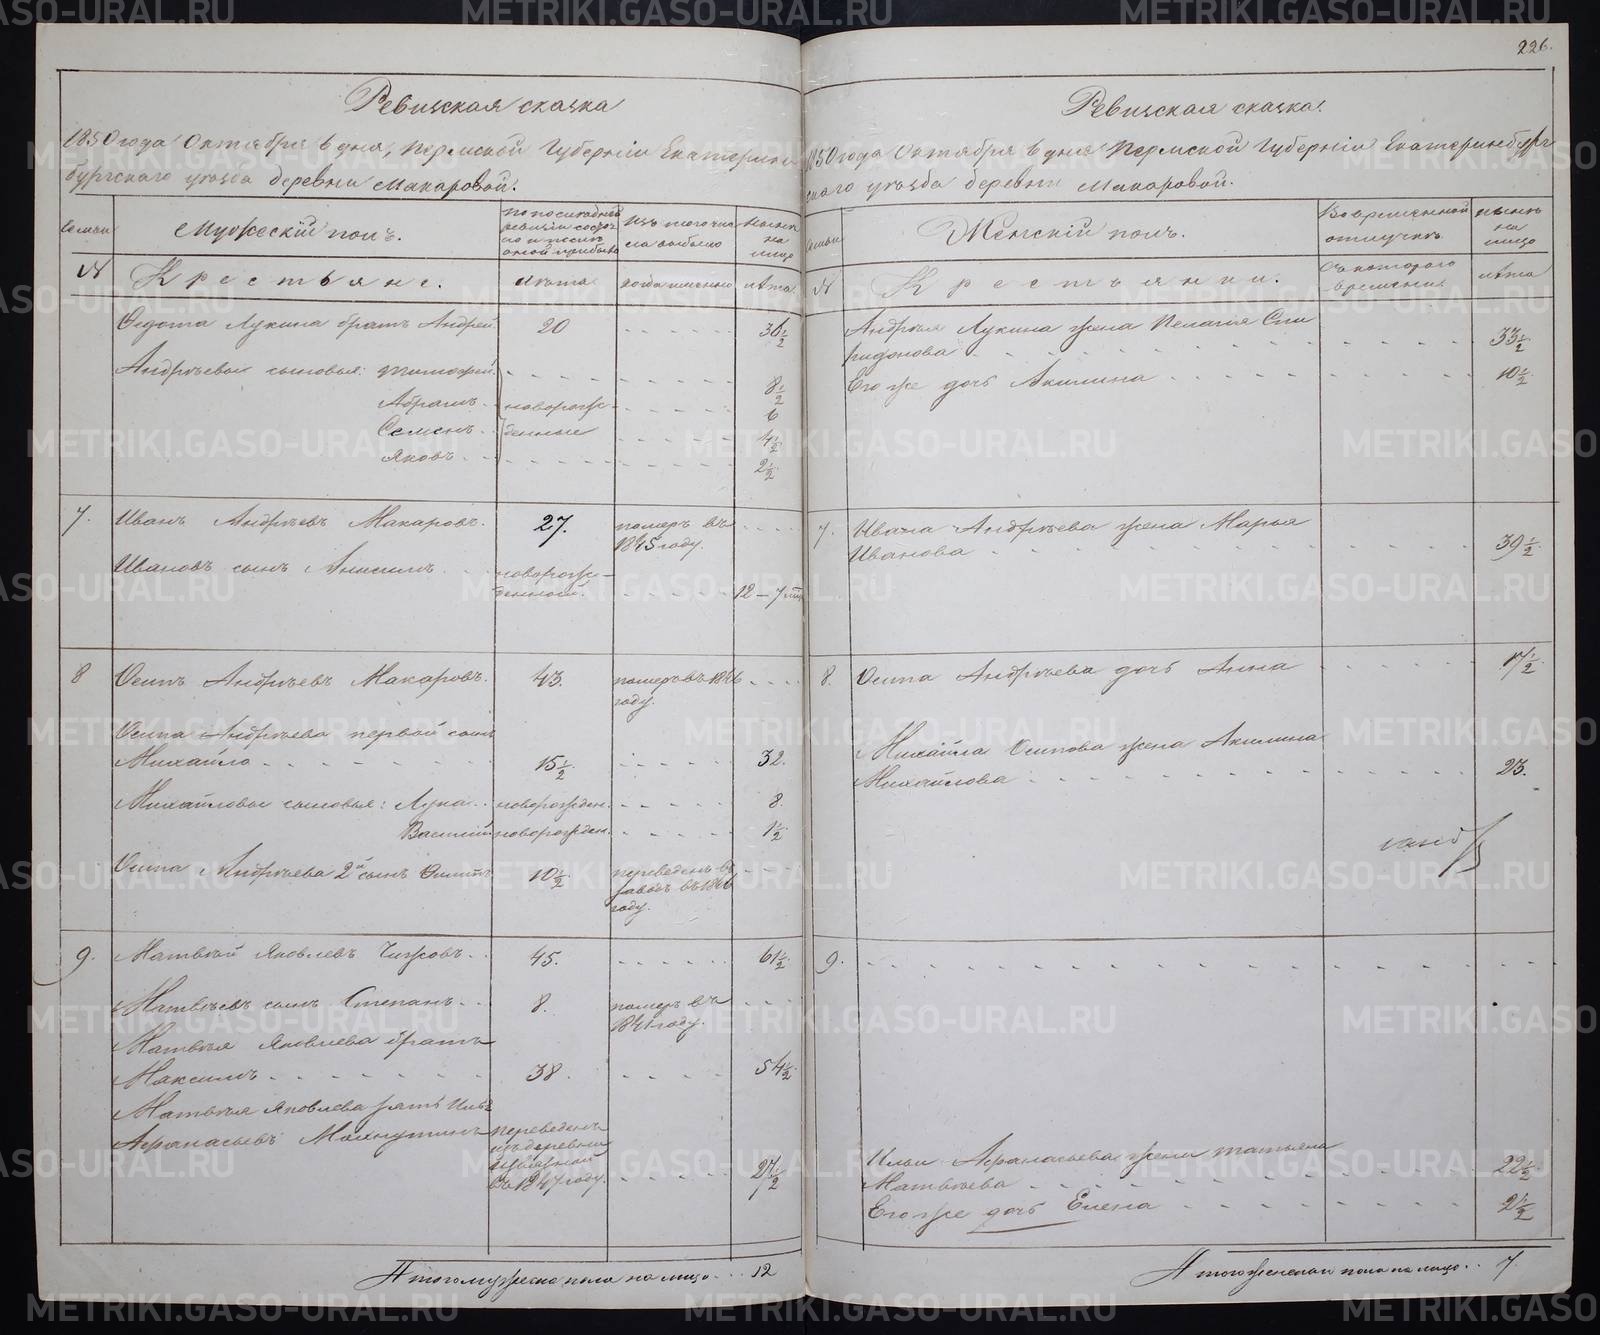 226.
Ревизская сказка
1850 года Октября 6 дня, Пермской Губерніи Екатерин-
бургскаго уѣзда деревни Макаровой.
Семьи
Мужескій полъ.
По последней
ревизіи состо
яло и после
оной прибыло
Изъ того числа выбыло
Нынѣ
на
лицо
N
Крестьяне.
Лѣта
Когда именно
Лѣта
Федота Лукина братъ Андрей 20 36½
Андрѣевы сыновья: Тимофей 8½
Абрамъ новорож- 6
Семенъ денные 4½
Яковъ 2½
7. Иванъ Андрѣевъ Макаровъ. 27. померъ въ
1845 году.
Ивановъ сынъ Анисимъ новорож-
денной. 12 – 7 м.
8 Осипъ Андрѣевъ Макаровъ. 43. померъ въ 1846
году.
Осипа Андрѣева первой сынъ
Михайло 15½ 32.
Михайловы сыновья: Лука новорожден. 8.
Василій новорожден. 1½
Осипа Андрѣева 2й сынъ 10½ переведенъ въ
заводъ въ 1846
году.
9. Матвѣй Яковлевъ Чижовъ. 45. 61½
Матвѣевъ сынъ Степанъ 8. померъ въ
1841 году.
Матвѣя Яковлева братъ
Максимъ 38. 54½
Матвѣя Яковлева зять Илья
Афанасьевъ переведенъ
изъ деревни
въ 1847 году. 27½
Итого мужеска пола на лицо 12
Ревизская сказка.
1850 года Октября 6 дня Пермской Губерніи Екатеринбург
скаго уѣзда деревни Макаровой.
Семьи
Женскій полъ.
Во временной
отлучкѣ
Нынѣ
на
лицо
N
Крестьянки.
Съ котораго
времени
Лѣта
Андрѣя Лукина жена Пелагія Спи
ридонова 33½
Его же дочь Акилина 10½
7. Ивана Андрѣева жена Марья
Иванова 39½
8. Осипа Андрѣева дочь Анна 17½
Михайла Осипова жена Акилина
Михайлова 23.
9.
Ильи Афанасьева жена Татьяна
Матвѣева 22½
Его же дочь Елена 2½
Итого женскаго пола на лицо 7.
METRIKI.GASO-URAL.RU